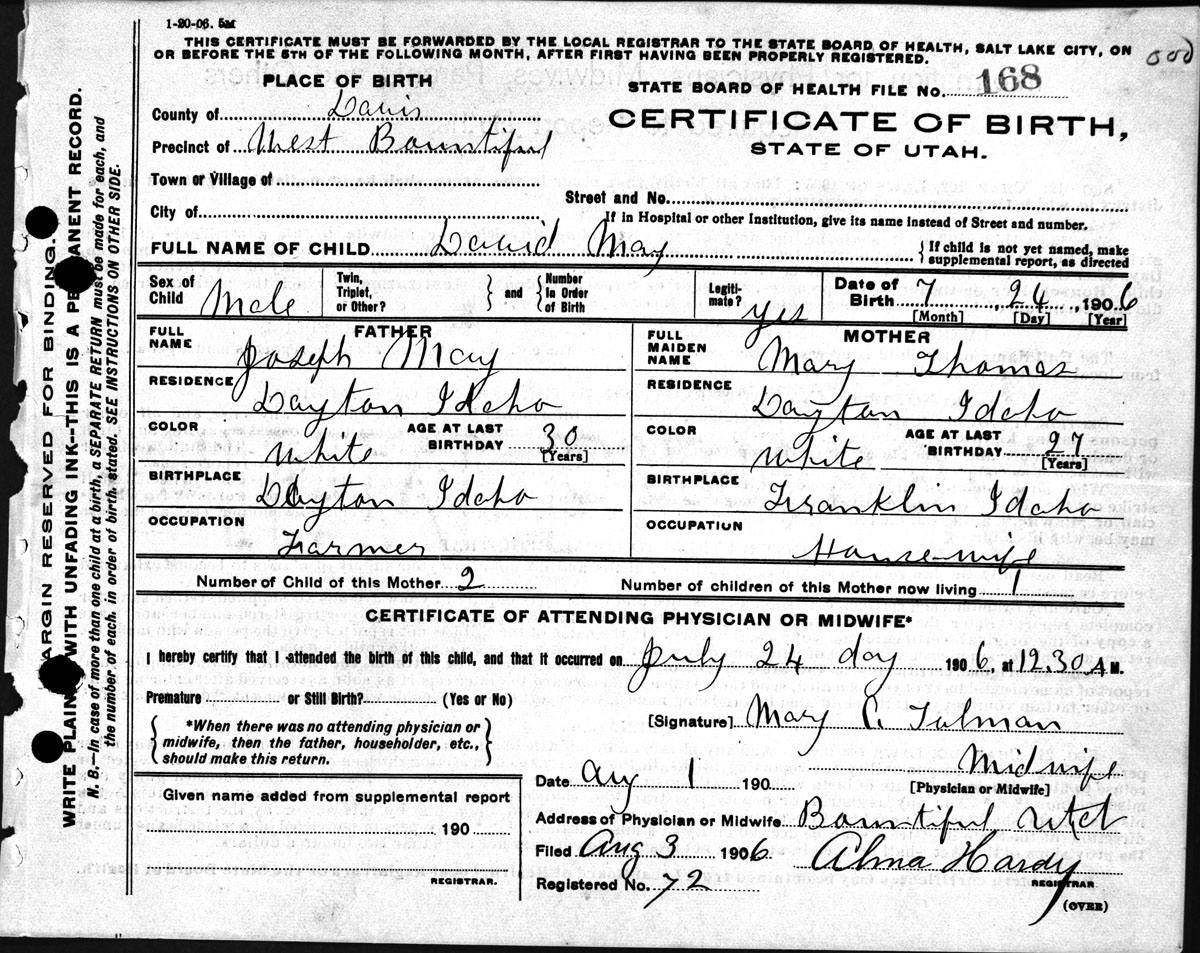 1-20-06. 5M
THIS CERTIFICATE MUST BE FORWARDED BY THE LOCAL REGISTRAR TO THE STATE BOARD OF HEALTH, SALT LAKE CITY, ON
OR BEFORE THE 5TH OF THE FOLLOWING MONTH, AFTER FIRST HAVING BEEN PROPERLY REGISTERED.
PLACE OF BIRTH
STATE BOARD OF HEALTH FILE No. 168
County of Davis
CERTIFICATE OF BIRTH,
Precinct of West Bountiful
STATE OF UTAH.
Town or Village of
Street and No.
City of
If in Hospital or other Institution, give its name instead of Street and number.
FULL NAME OF CHILD David May
{If child is not yet named, make
supplemental report, as directed
Sex of Child Male
Twin, Triplet, or Other?
} and { Number in Order of Birth
Legitimate? yes
Date of Birth 7 24, 1906
[Month] [Day] [Year]
FATHER
FULL NAME Joseph May
RESIDENCE Dayton Idaho
COLOR White
AGE AT LAST BIRTHDAY 30
[Years]
BIRTHPLACE Dayton Idaho
OCCUPATION Farmer
MOTHER
FULL MAIDEN NAME Mary Thomas
RESIDENCE Dayton Idaho
COLOR White
AGE AT LAST BIRTHDAY 27
[Years]
BIRTHPLACE Franklin Idaho
OCCUPATION House-wife
Number of Child of this Mother 2
Number of children of this Mother now living 1
CERTIFICATE OF ATTENDING PHYSICIAN OR MIDWIFE*
I hereby certify that I attended the birth of this child, and that it occurred on July 24 day 1906, at 12.30 A M.
Premature or Still Birth? (Yes or No)
{ *When there was no attending physician or
midwife, then the father, householder, etc.,
should make this return. }
[Signature] Mary C. Tolman
Midwife
[Physician or Midwife]
Date Aug 1 190
Address of Physician or Midwife Bountiful Utah
Filed Aug 3 1906. Alma Hardy
REGISTRAR
Registered No. 72
(OVER)
Given name added from supplemental report
190
REGISTRAR.
MARGIN RESERVED FOR BINDING.
WRITE PLAINLY WITH UNFADING INK--THIS IS A PERMANENT RECORD.
N. B.—In case of more than one child at a birth, a SEPARATE RETURN must be made for each, and
the number of each, in order of birth, stated. SEE INSTRUCTIONS ON OTHER SIDE.